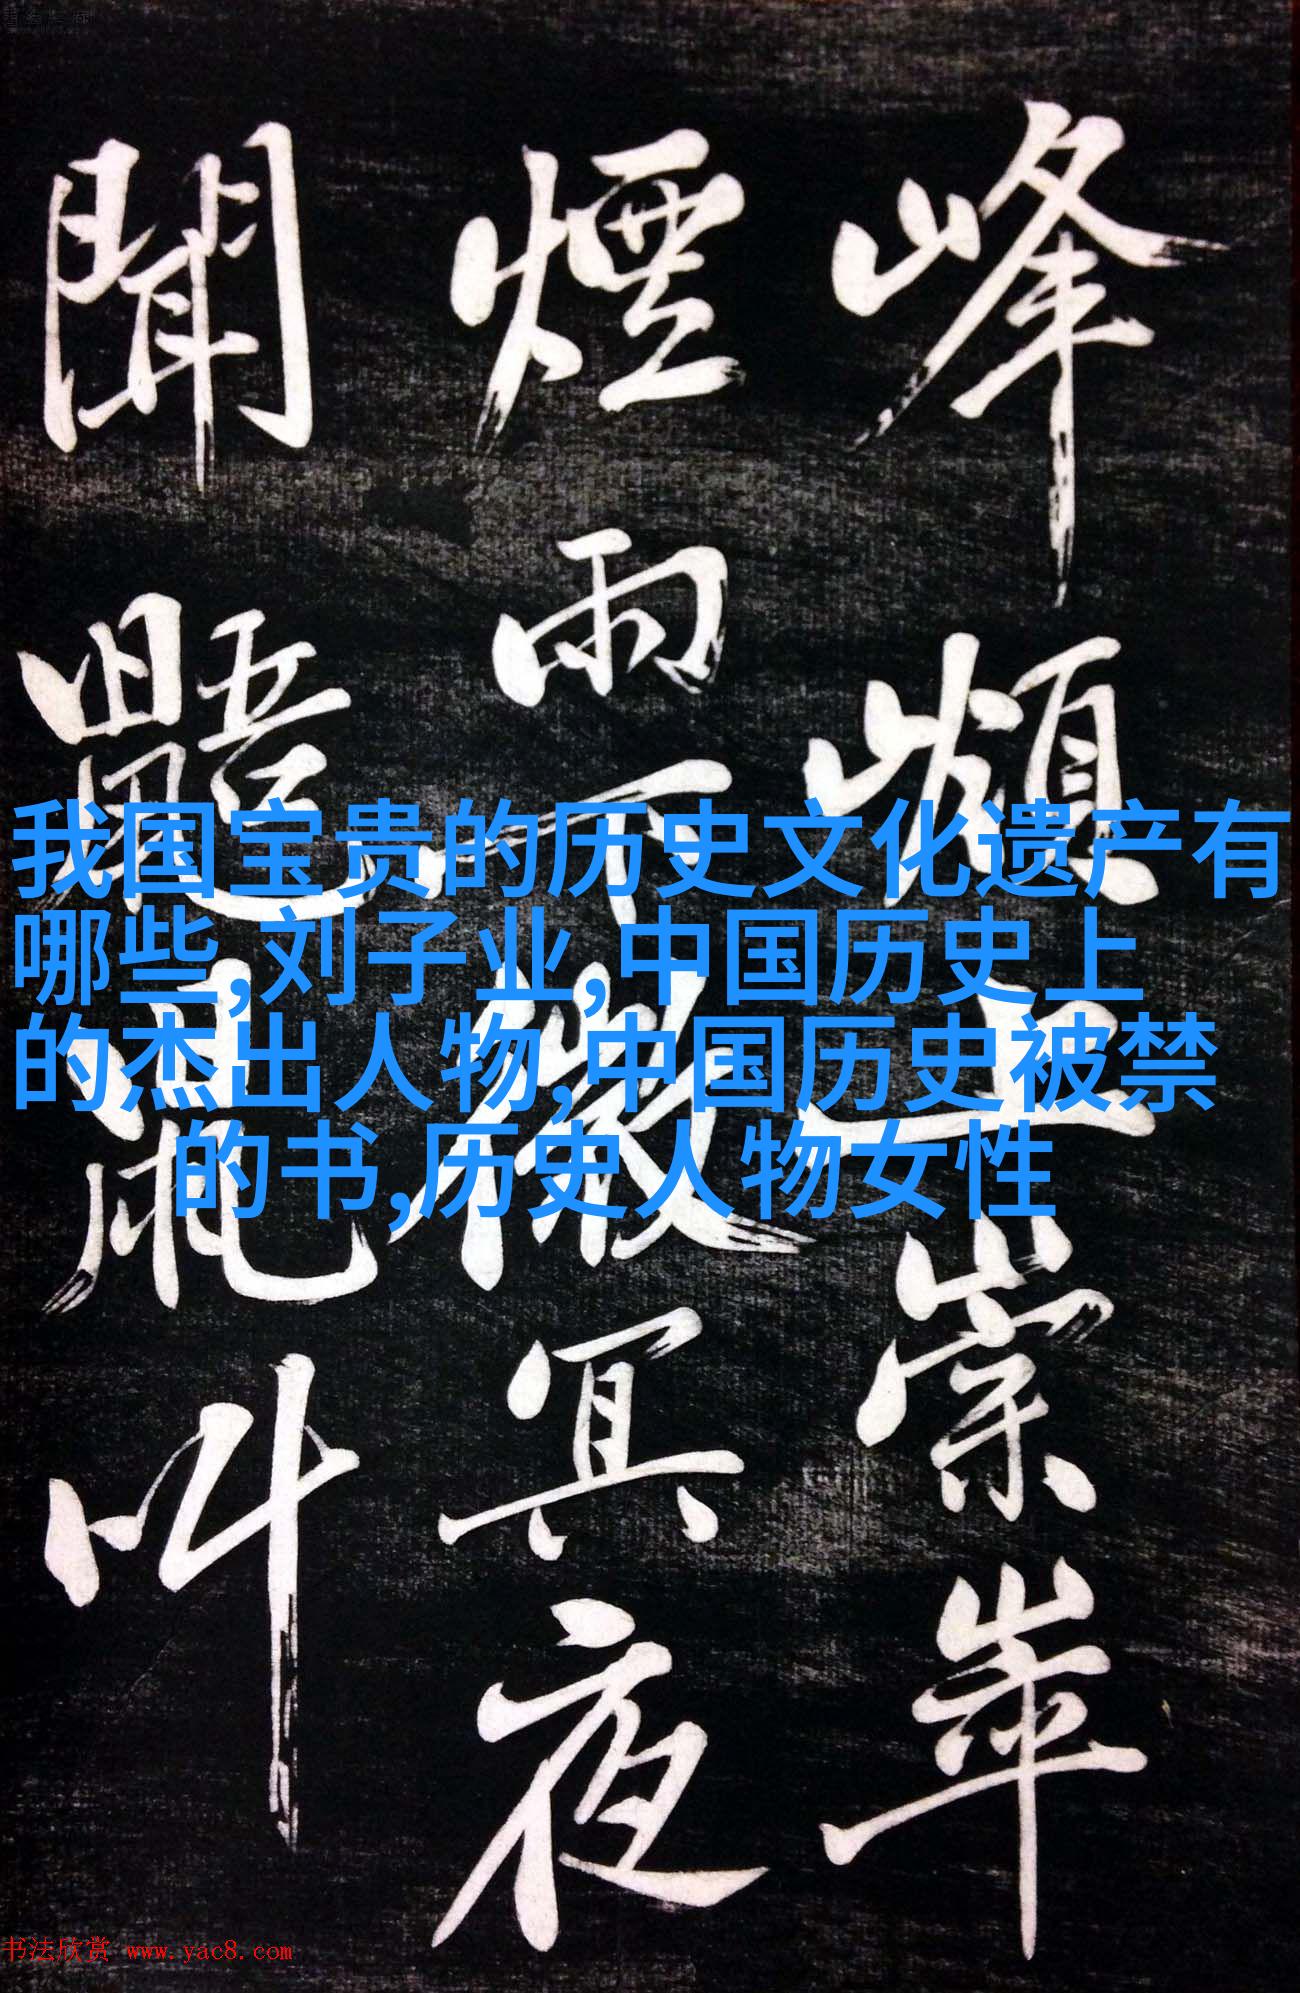 峰巔上崇崒
煙雨下微冥夜
聞鼯鼠叫
我国宝贵的历史文化遗产有
哪些,刘子业,中国历史上
的杰出人物,中国历史被禁
的书,历史人物女性
书法欣赏 www.yac8.com